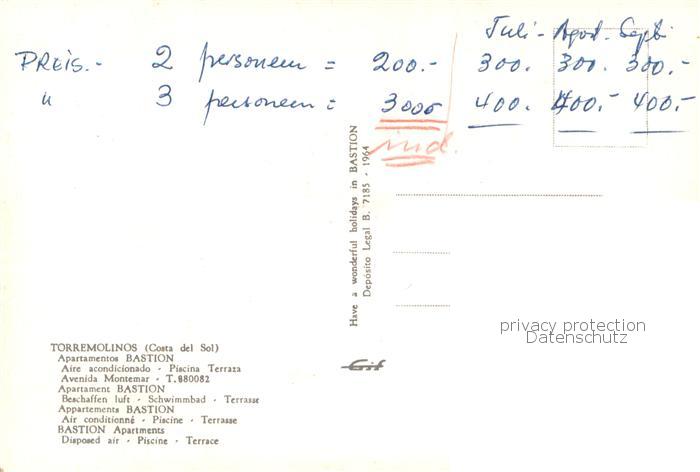 Juli - Agost - Sept.
PREIS.- 2 personem = 200.- 300. 300. 300.-
" 3 personem = 300.- 400. 400.- 400.-
ind.
Have a wonderful holidays in BASTION
Depósito Legal B. 7185 - 1964
privacy protection
Datenschutz
TORREMOLINOS (Costa del Sol)
Apartamentos BASTION
Aire acondicionado - Piscina Terraza
Avenida Montemar - T.880082
Apartament BASTION
Beschaffen luft - Schwimmbad - Terrasse
Appartements BASTION
Air conditionné - Piscine - Terrasse
BASTION Apartments
Disposed air - Piscine - Terrace